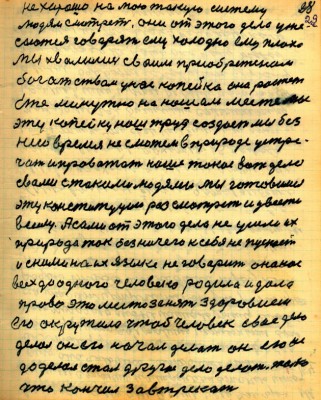 28
29
не хорошо на мою такую систему
людям смотреть, они от этого дела ужа
саются говорят ему холодно ему плохо
мы хвалимся своим приобретеным
богатством у нас копейка она растет
еже минутно на нашем месте мы
эту копейку наш труд создает мы без
него время не сможем в природе
чат и проватат наше такое вот дело
с вами с такими людями мы готовимся
эту конституцию рассмотреть и
в жизнь. А сами от этого дела не ушли их
природа так без ничего к себе не пускает
и с ними на их языке не говорит она нас
всех до одного человека родила и дала
право это место занять здоровием
его окружила чтоб человек свое дело
делал он его начал делать он его не
доделал стал другое дело делать, только
что кончил завтрекать